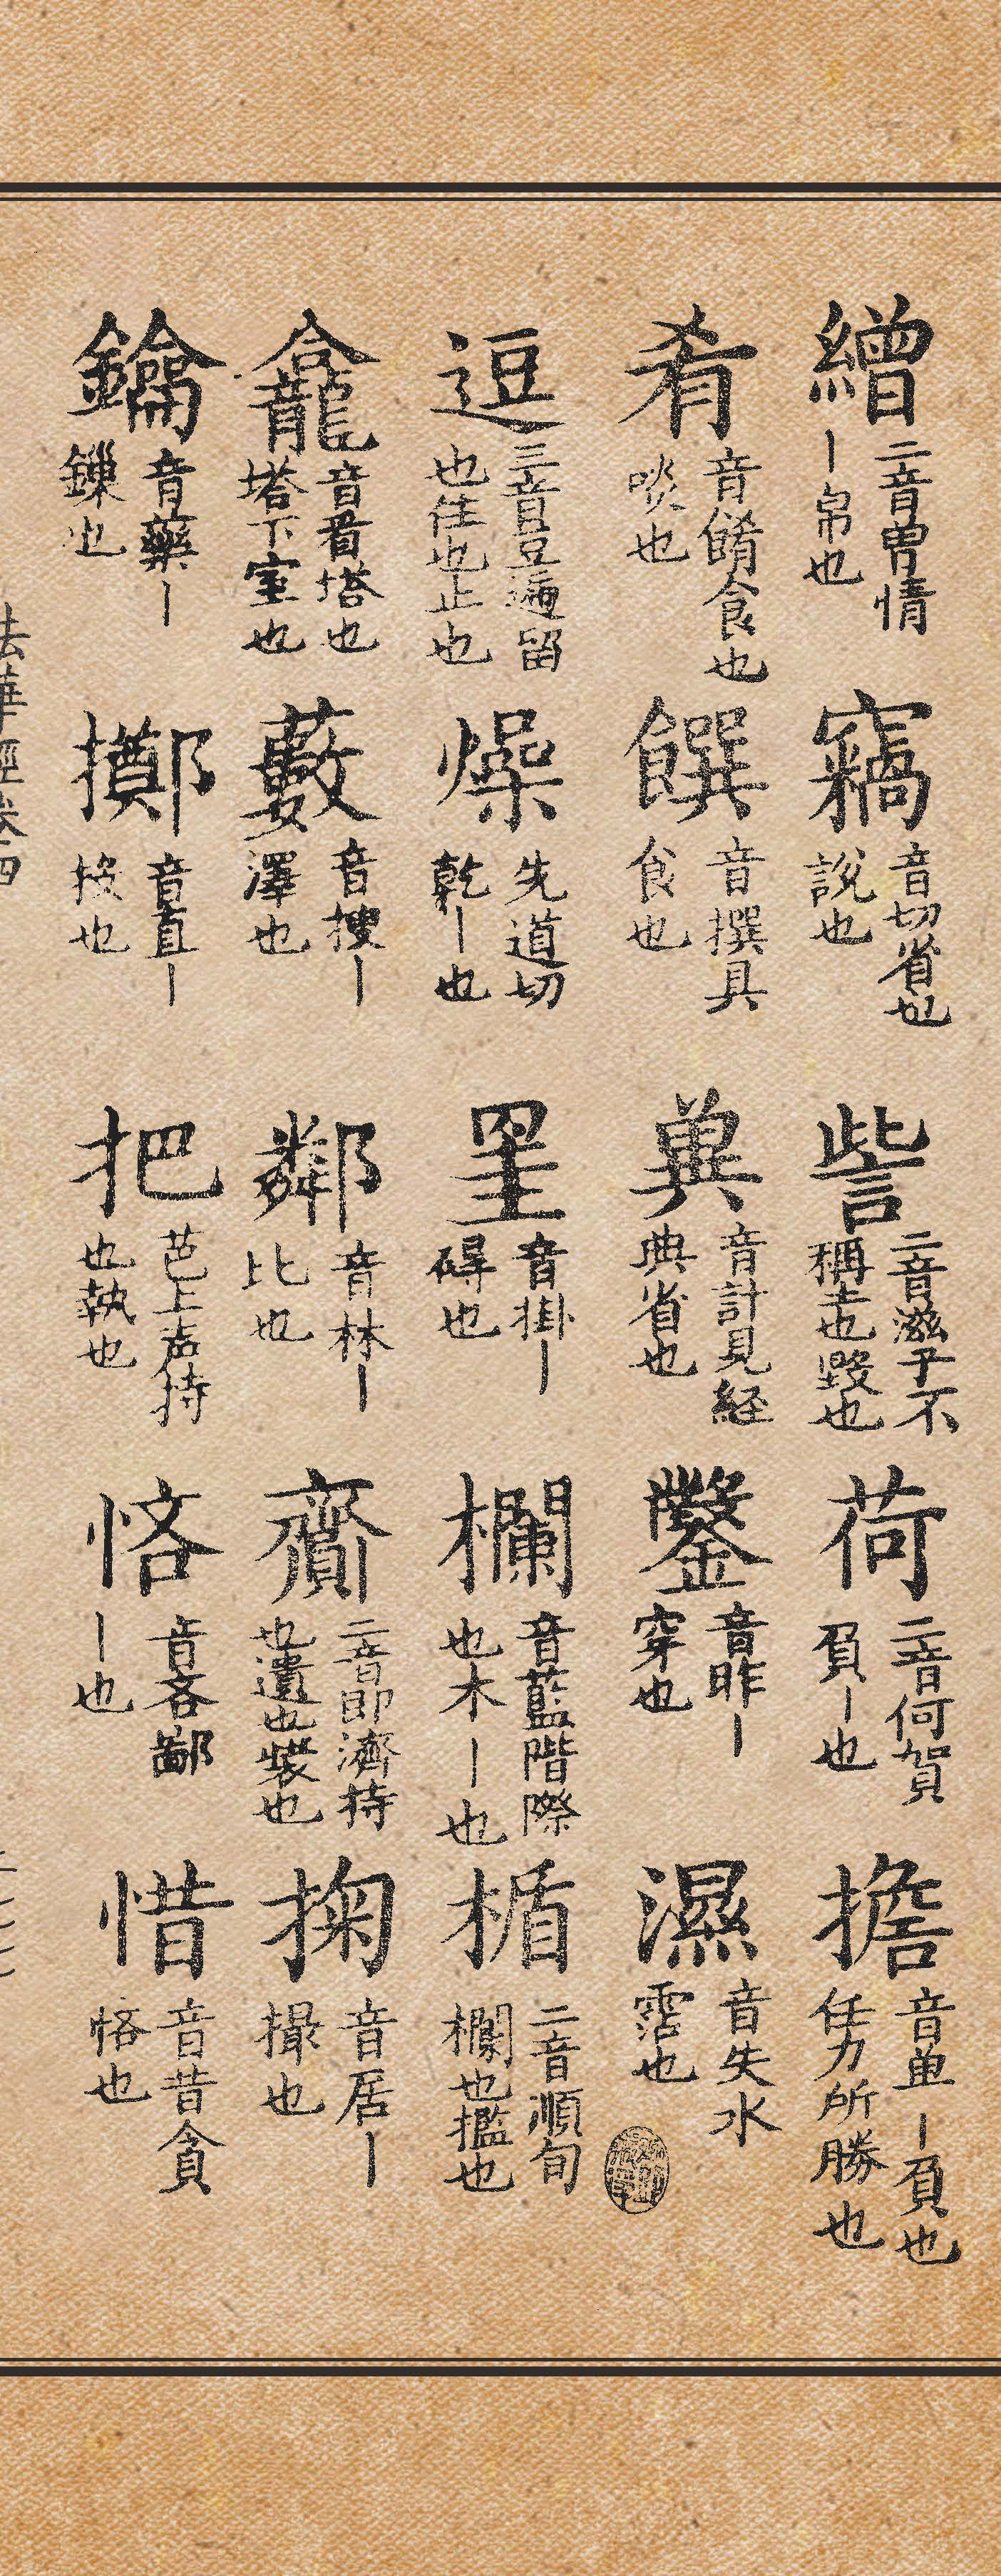 繒二音曽情丨帛也 竊音切省也説也 訾二音滋子不稱意也毀也 荷二音何賀負丨也 擔音单丨負也任力所勝也
肴音餚食也啖也 饌音撰具食也 㔟音計見経典省也 鑿音昨丨穿也 濕音失水霑也
逗三音豆遍留也住也止也 燥先道切乾丨也 罣音掛丨碍也 欄音藍階際也木丨也 楯二音順旬欄也檻也
龕音看塔也塔下室也 藪音捜丨澤也 鄰音林丨比也 齎二音即濟持也遺也裝也 掬音居丨撮也
鑰音藥丨鏁也 擲音直丨投也 把芭上声持也執也 悋音吝鄙丨也 惜音昔貪悋也
法華經卷四